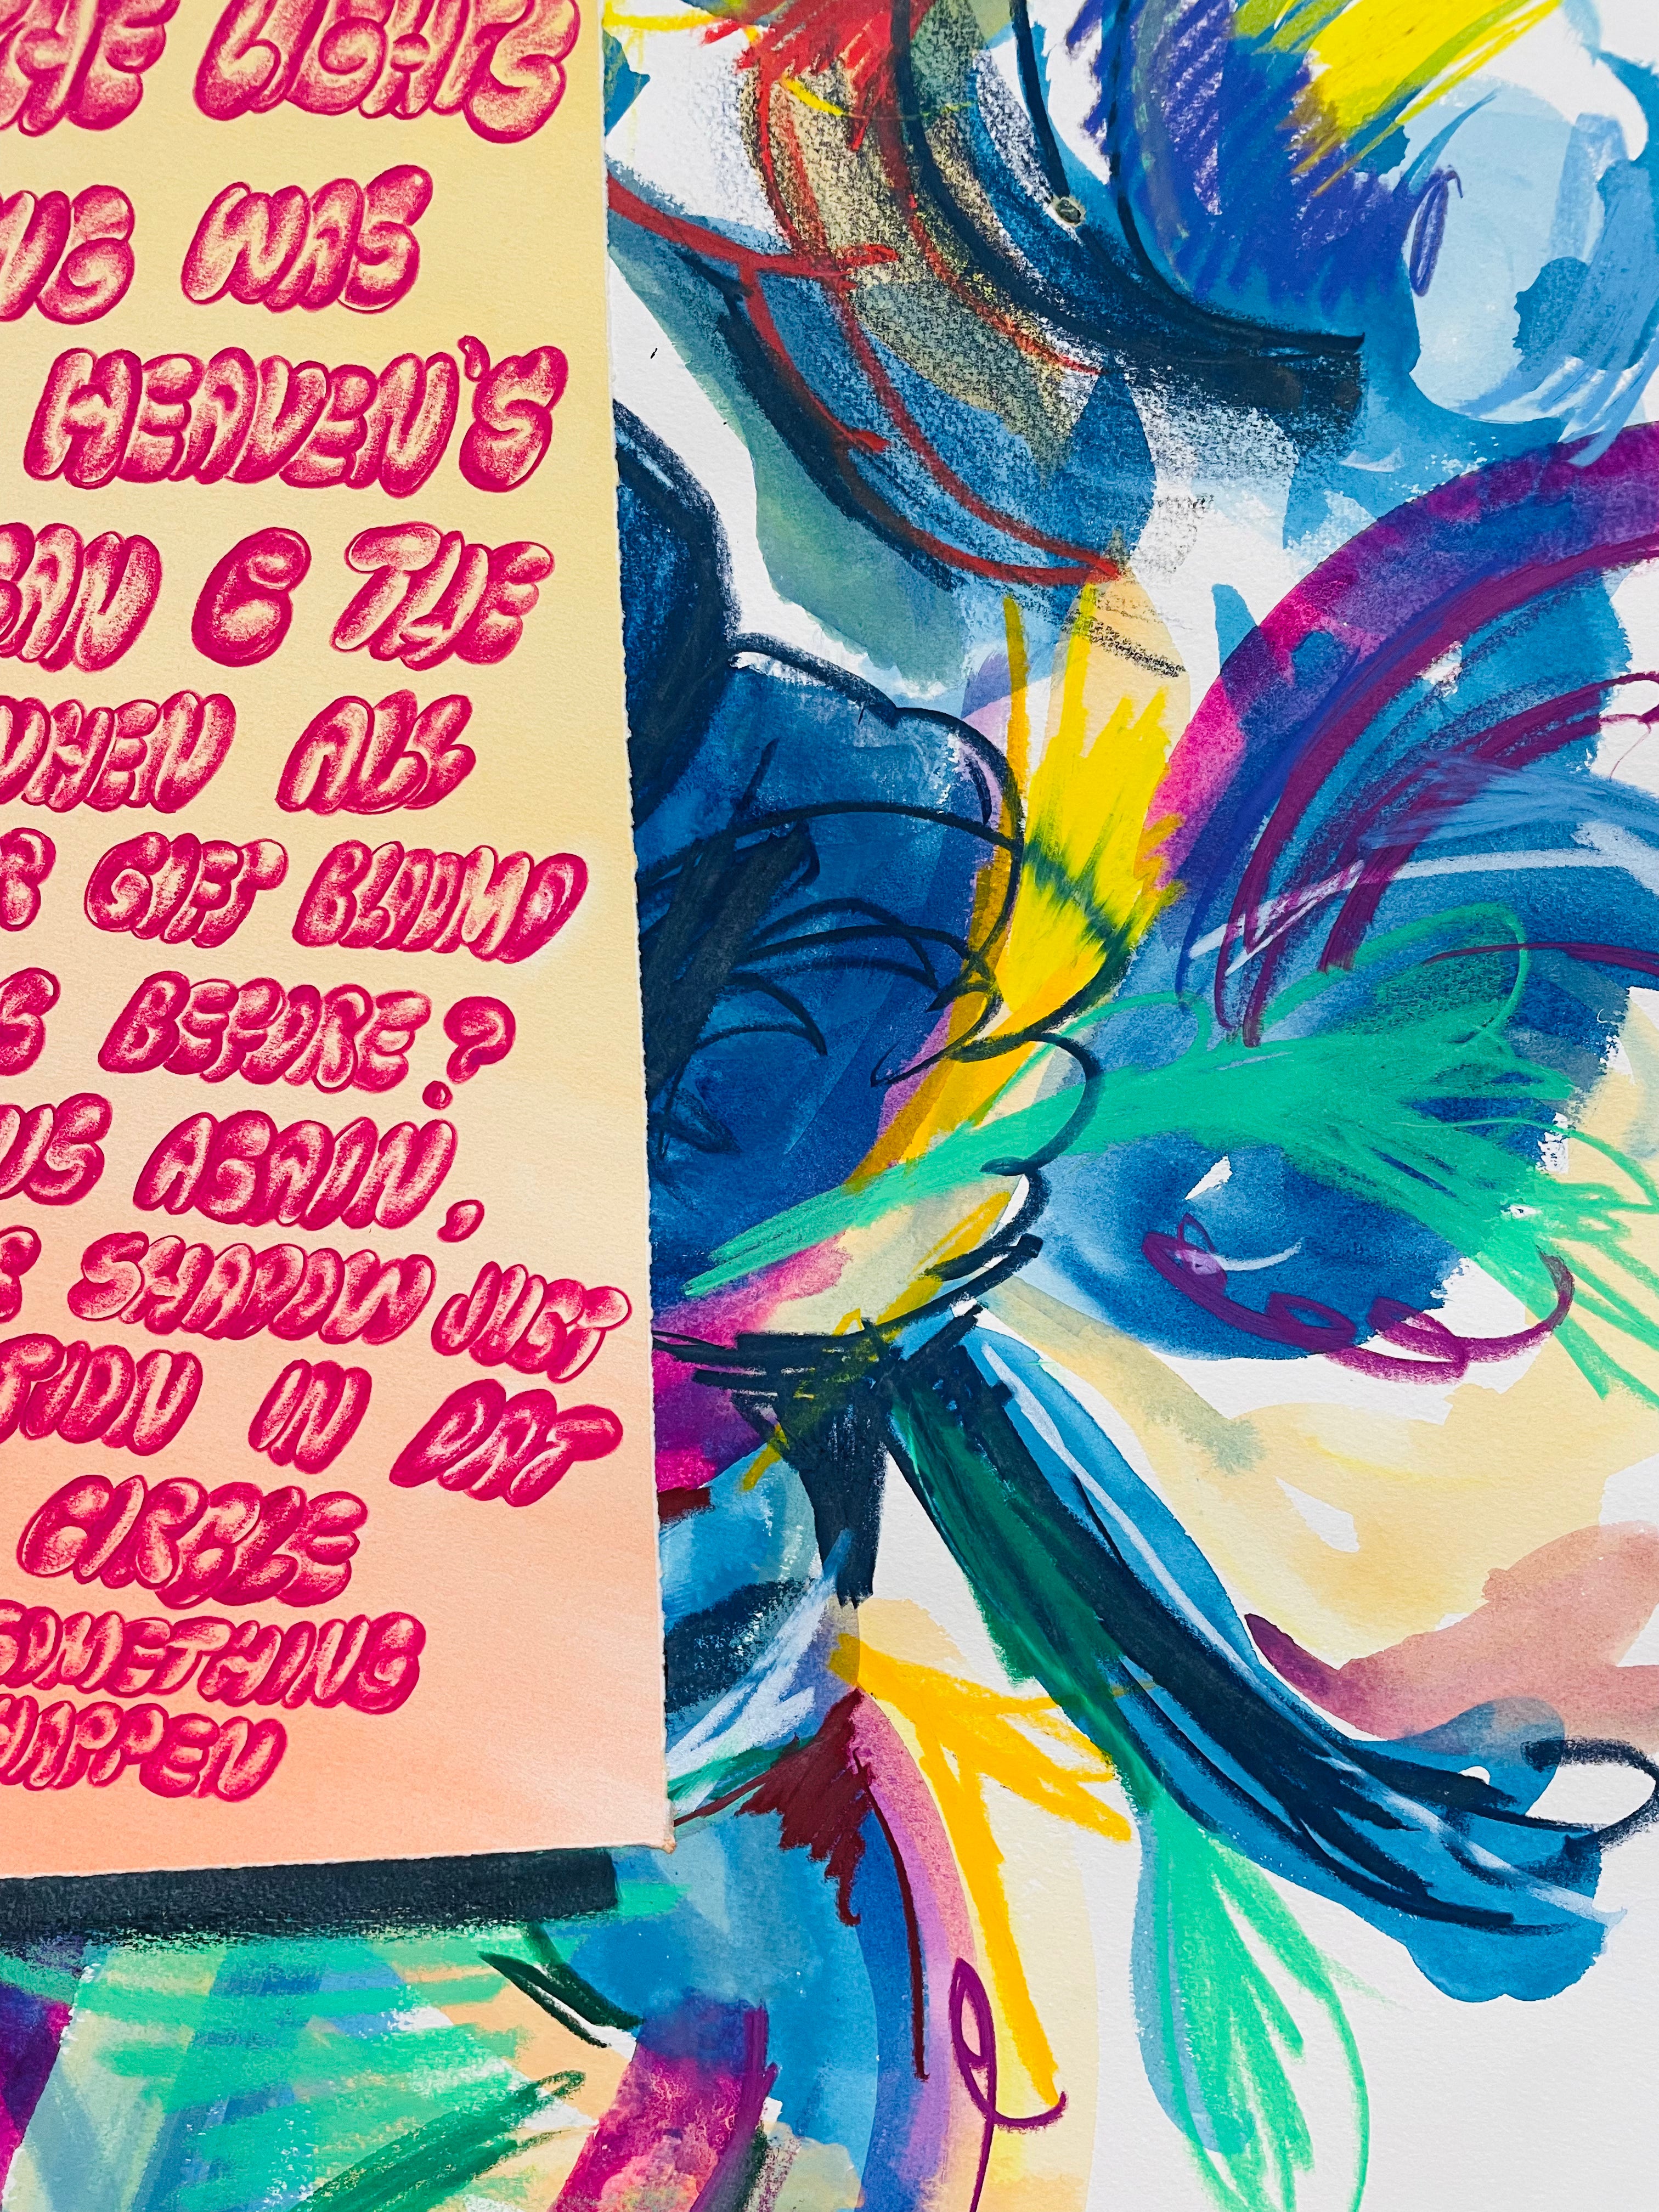 THE LIGHTS
WAS
HEAVEN'S
& THE
WHEN ALL
GIFT BLOOMD
BEFORE?
US AGAIN,
SHADOW JUST
IN DAT
CIRCLE
SOMETHING
HAPPEN